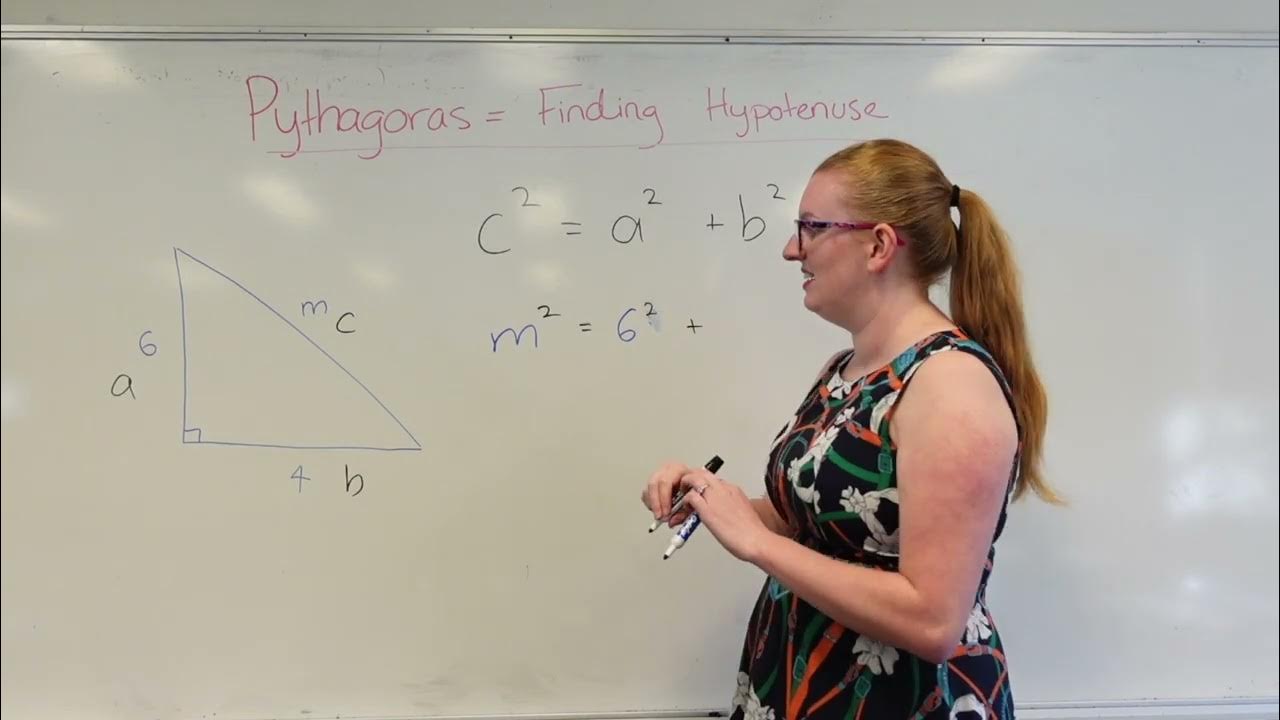 Pythagoras = Finding Hypotenuse
c² = a² + b²
m² = 6² +
m c
6
a
4 b